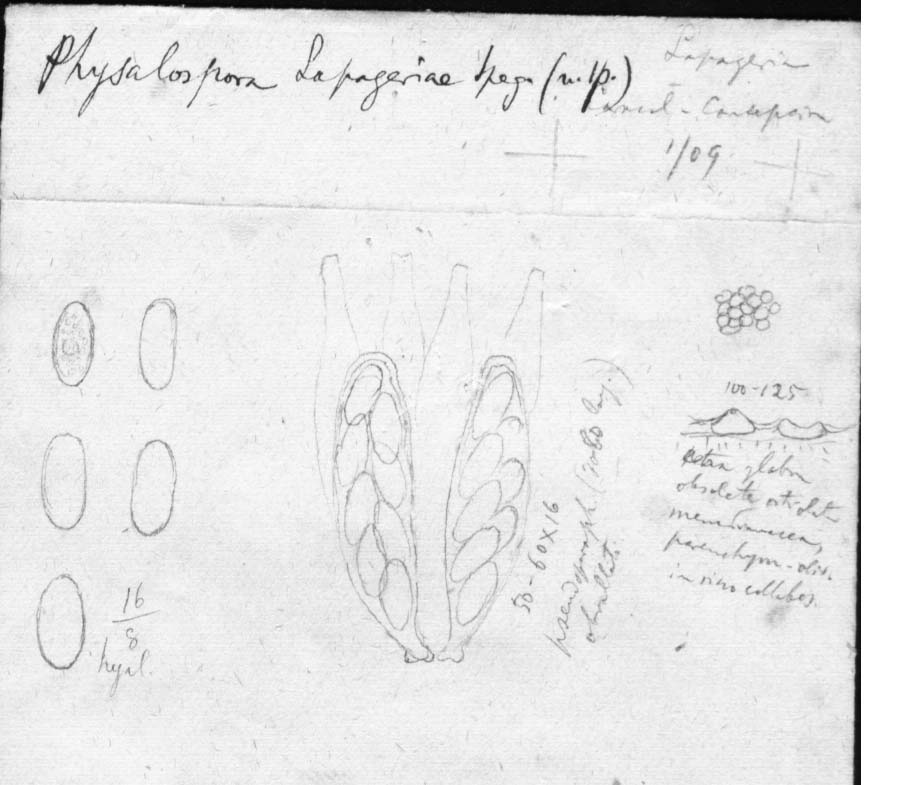 Physalospora Lapageriae Speg. (n. sp.)
Lapageria
Concepcion
1/09
100-125
glabra
obsolete ostiolat
membranacea,
parenchym-oliv.
in sicco collabes.
50-60x16
pseudoparaph
obvallati
16
8
hyal.